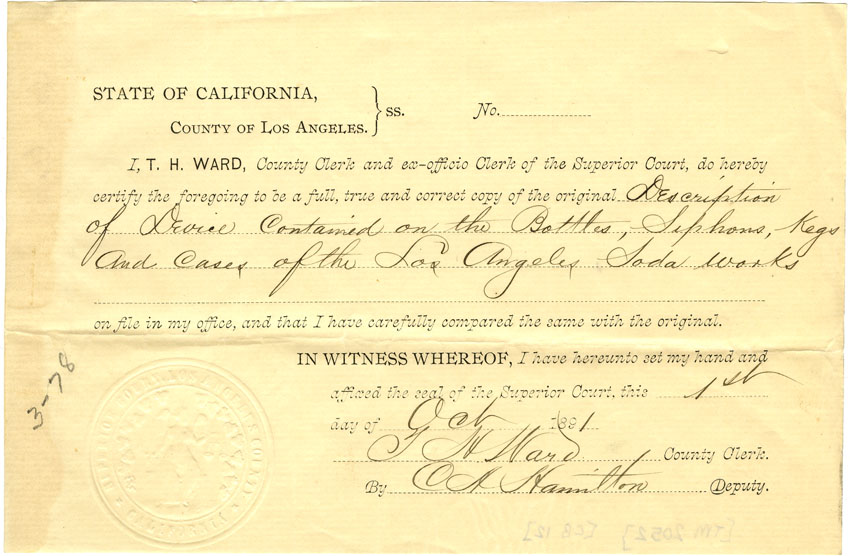 STATE OF CALIFORNIA,
COUNTY OF LOS ANGELES.
ss. No.
I, T. H. WARD, County Clerk and ex-officio Clerk of the Superior Court, do hereby
certify the foregoing to be a full, true and correct copy of the original Description
of Device Contained on the Bottles, Siphons, Kegs
and Cases of the Los Angeles Soda Works
on file in my office, and that I have carefully compared the same with the original.
IN WITNESS WHEREOF, I have hereunto set my hand and
affixed the seal of the Superior Court, this 1st
day of Oct 1891
T H Ward County Clerk.
By C A Hamilton Deputy.
3-78
CALIFORNIA
[TM 2052] [CB 12]